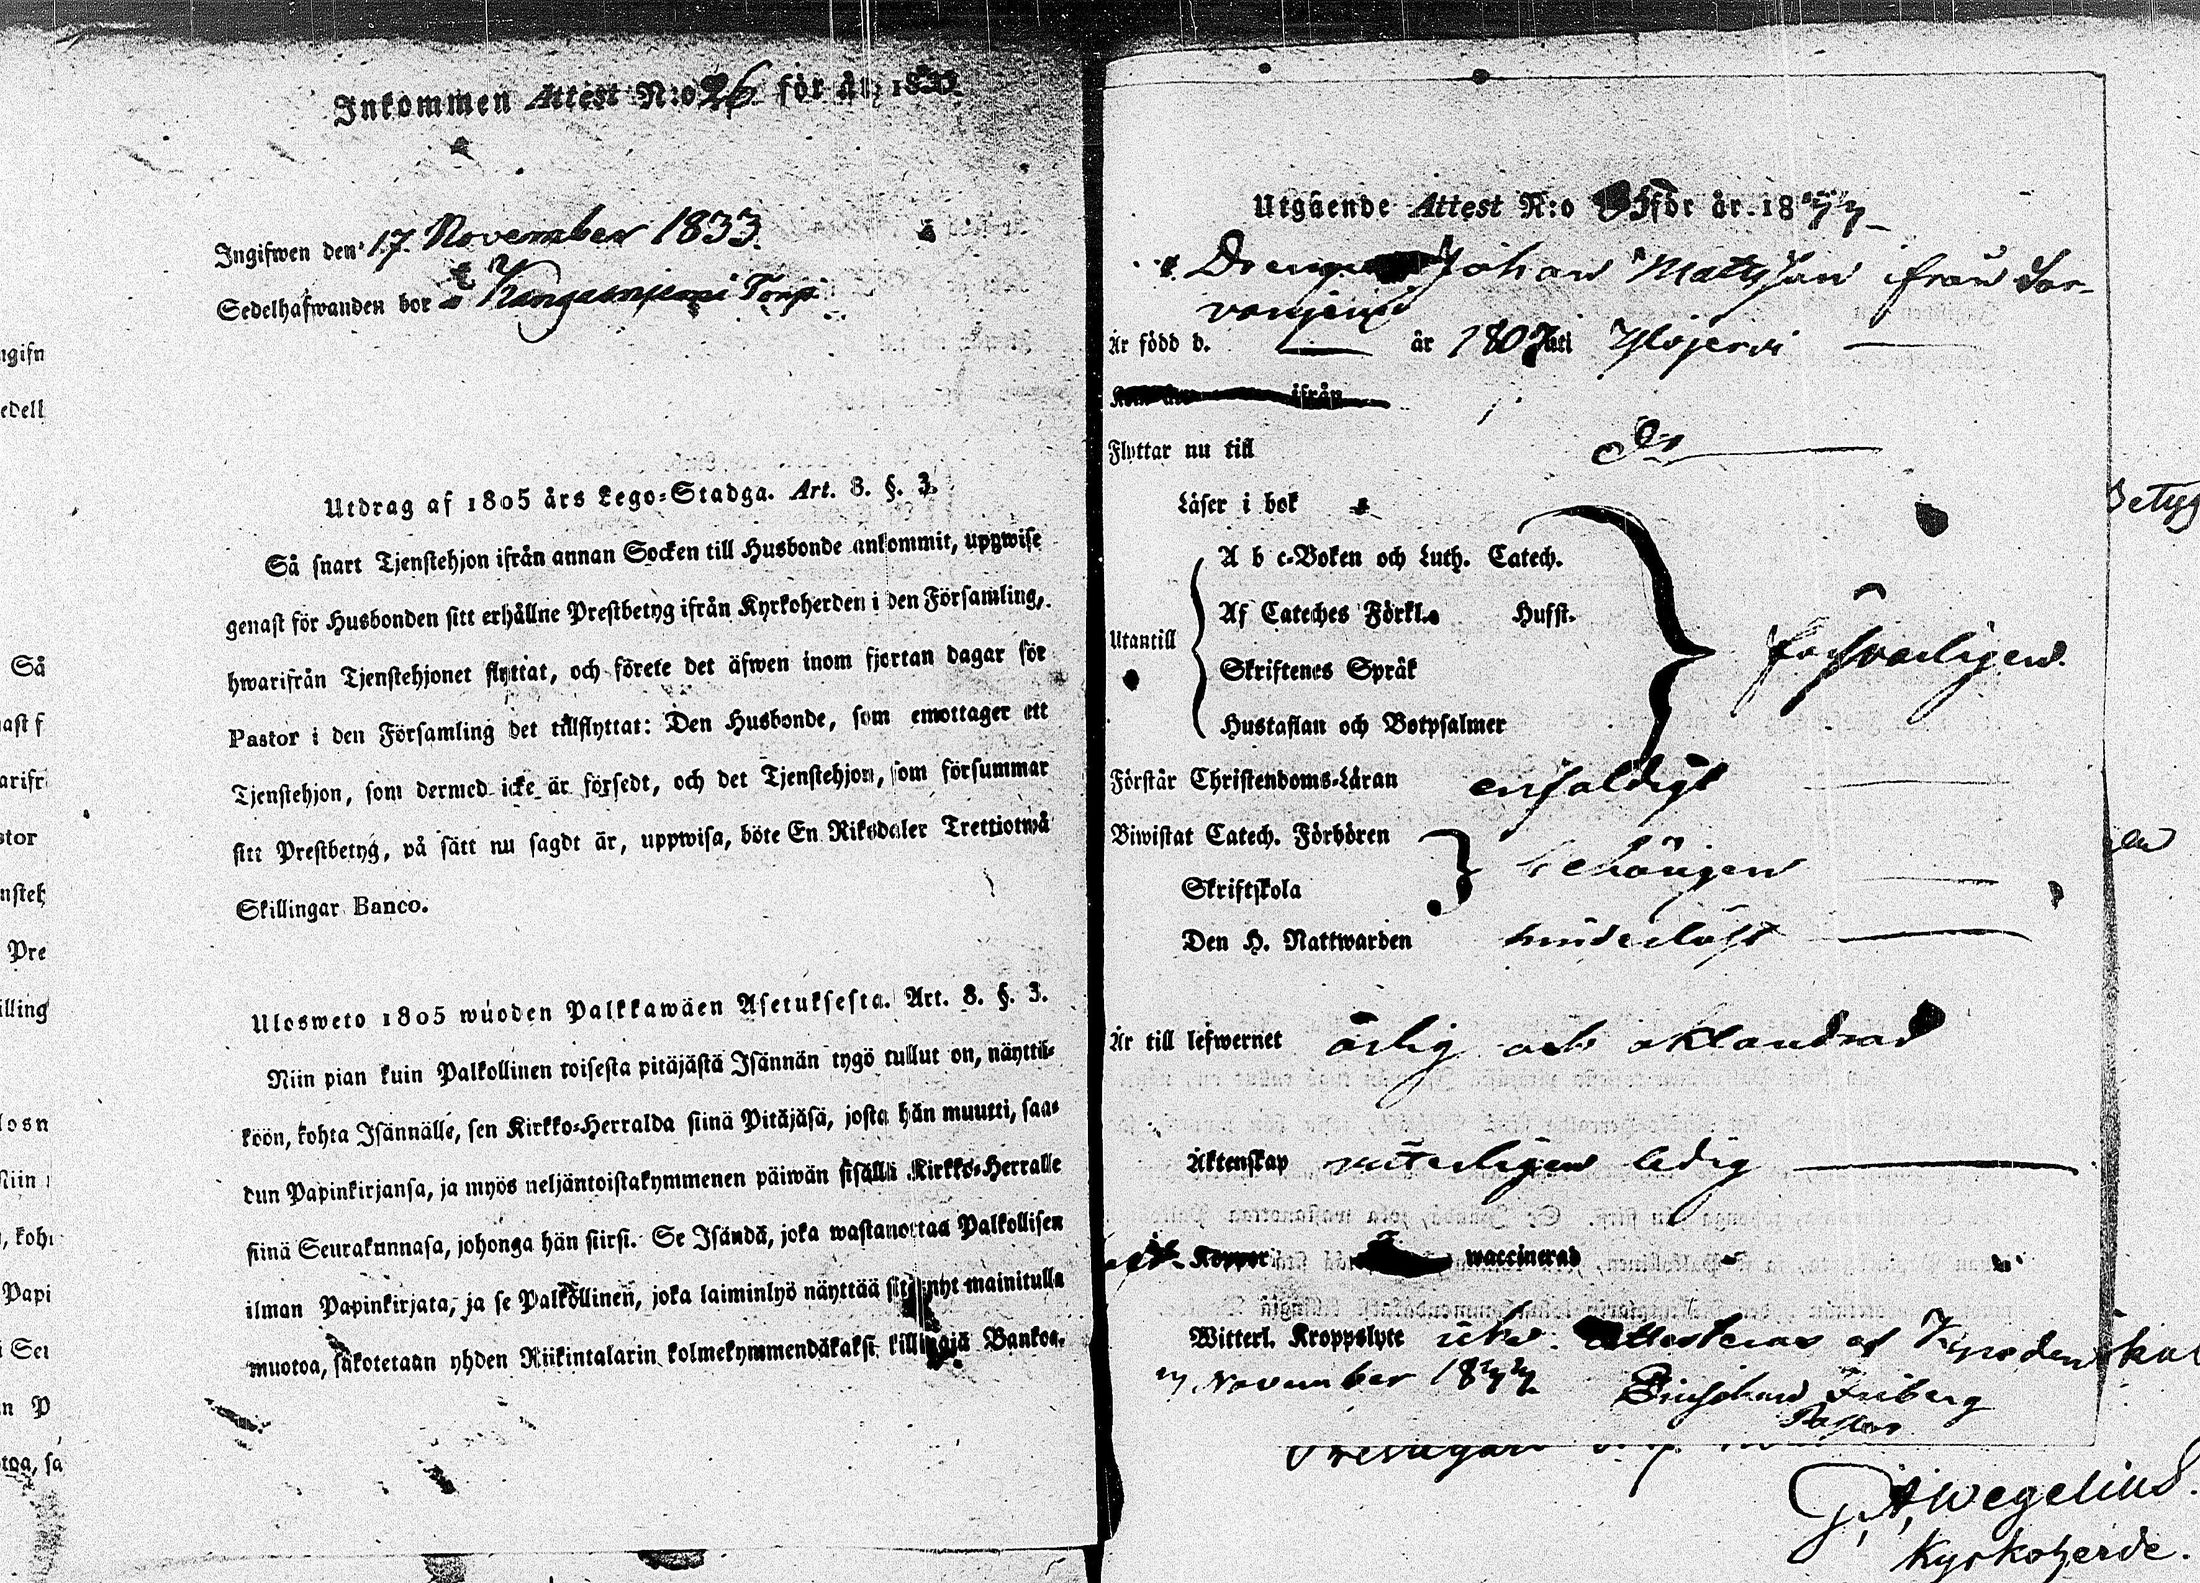 Inkommen Attest N:o 26 för år 1833.
Ingifwen den 17 November 1833.
Sedelhafwanden bor å Torp
Utdrag af 1805 års Lego-Stadga. Art. 8. §. 3.
Så snart Tjenstehjon ifrån annan Socken till Husbonde ankommit, uppwise
genast för Husbonden sitt erhållne Prestbetyg ifrån Kyrkoherden i den Församling,
hwarifrån Tjenstehjonet flyttat, och förete det äfwen inom fjortan dagar för
Pastor i den Församling det tillflyttat: Den Husbonde, som emottager ett
Tjenstehjon, som dermed icke är försedt, och det Tjenstehjon, som försummar
sitt Prestbetyg, på sätt nu sagdt är, uppwisa, böte En Riksdaler Trettiotwå
Skillingar Banco.
Ulosweto 1805 wuoden Palkkawäen Asetuksesta. Art. 8. §. 3.
Niin pian kuin Palkollinen toisesta pitäjästä Isännän tygö tullut on, näyttä-
köön, kohta Isännälle, sen Kirkko-Herralda siinä Pitäjäsä, josta hän muutti, saa-
dun Papinkirjansa, ja myös neljäntoistakymmenen päiwän sisällä Kirkko-Herralle
siinä Seurakunnasa, johonga hän siirsi. Se Isändä, joka wastanottaa Palkollisen
ilman Papinkirjata, ja se Palkollinen, joka laiminlyö näyttää sitä nyt mainitulla
muotoa, sakotetaan yhden Riikintalarin kolmekymmendäkaksi killingiä Bankos.
Utgående Attest N:o för år 1833
Drengen Johan Mattsson från Sar-
vanjemi
Är född d. år 180 uti Ylöjervi
ifrån
Flyttar nu till
Läser i bok
A b c-Boken och Luth. Catech.
Af Cateches Förkl. Hufst.
Utantill
Skriftenes Språk
försvarligen
Hustaflan och Botpsalmer
Förstår Christendoms-Läran enfaldigt
Biwistat Catech. Förhören
behörigen
Skriftskola
Den H. Nattwarden hinderlöst
Är till lefwernet ärlig och oklandrad
Äktenskap witterligen ledig
Koppor waccinerad
Witterl. Kroppslyte utan attesteras af Kyrö den
November 1833 Friberg
Pastor
Betyg
G. A. Wegelius.
Kyrkoherde.
ngifn
edell
Så
nast f
arifr
stor
nsteh
Pre
illing
losn
Niin
, koht
Papi
Seu
n P
toa, sa